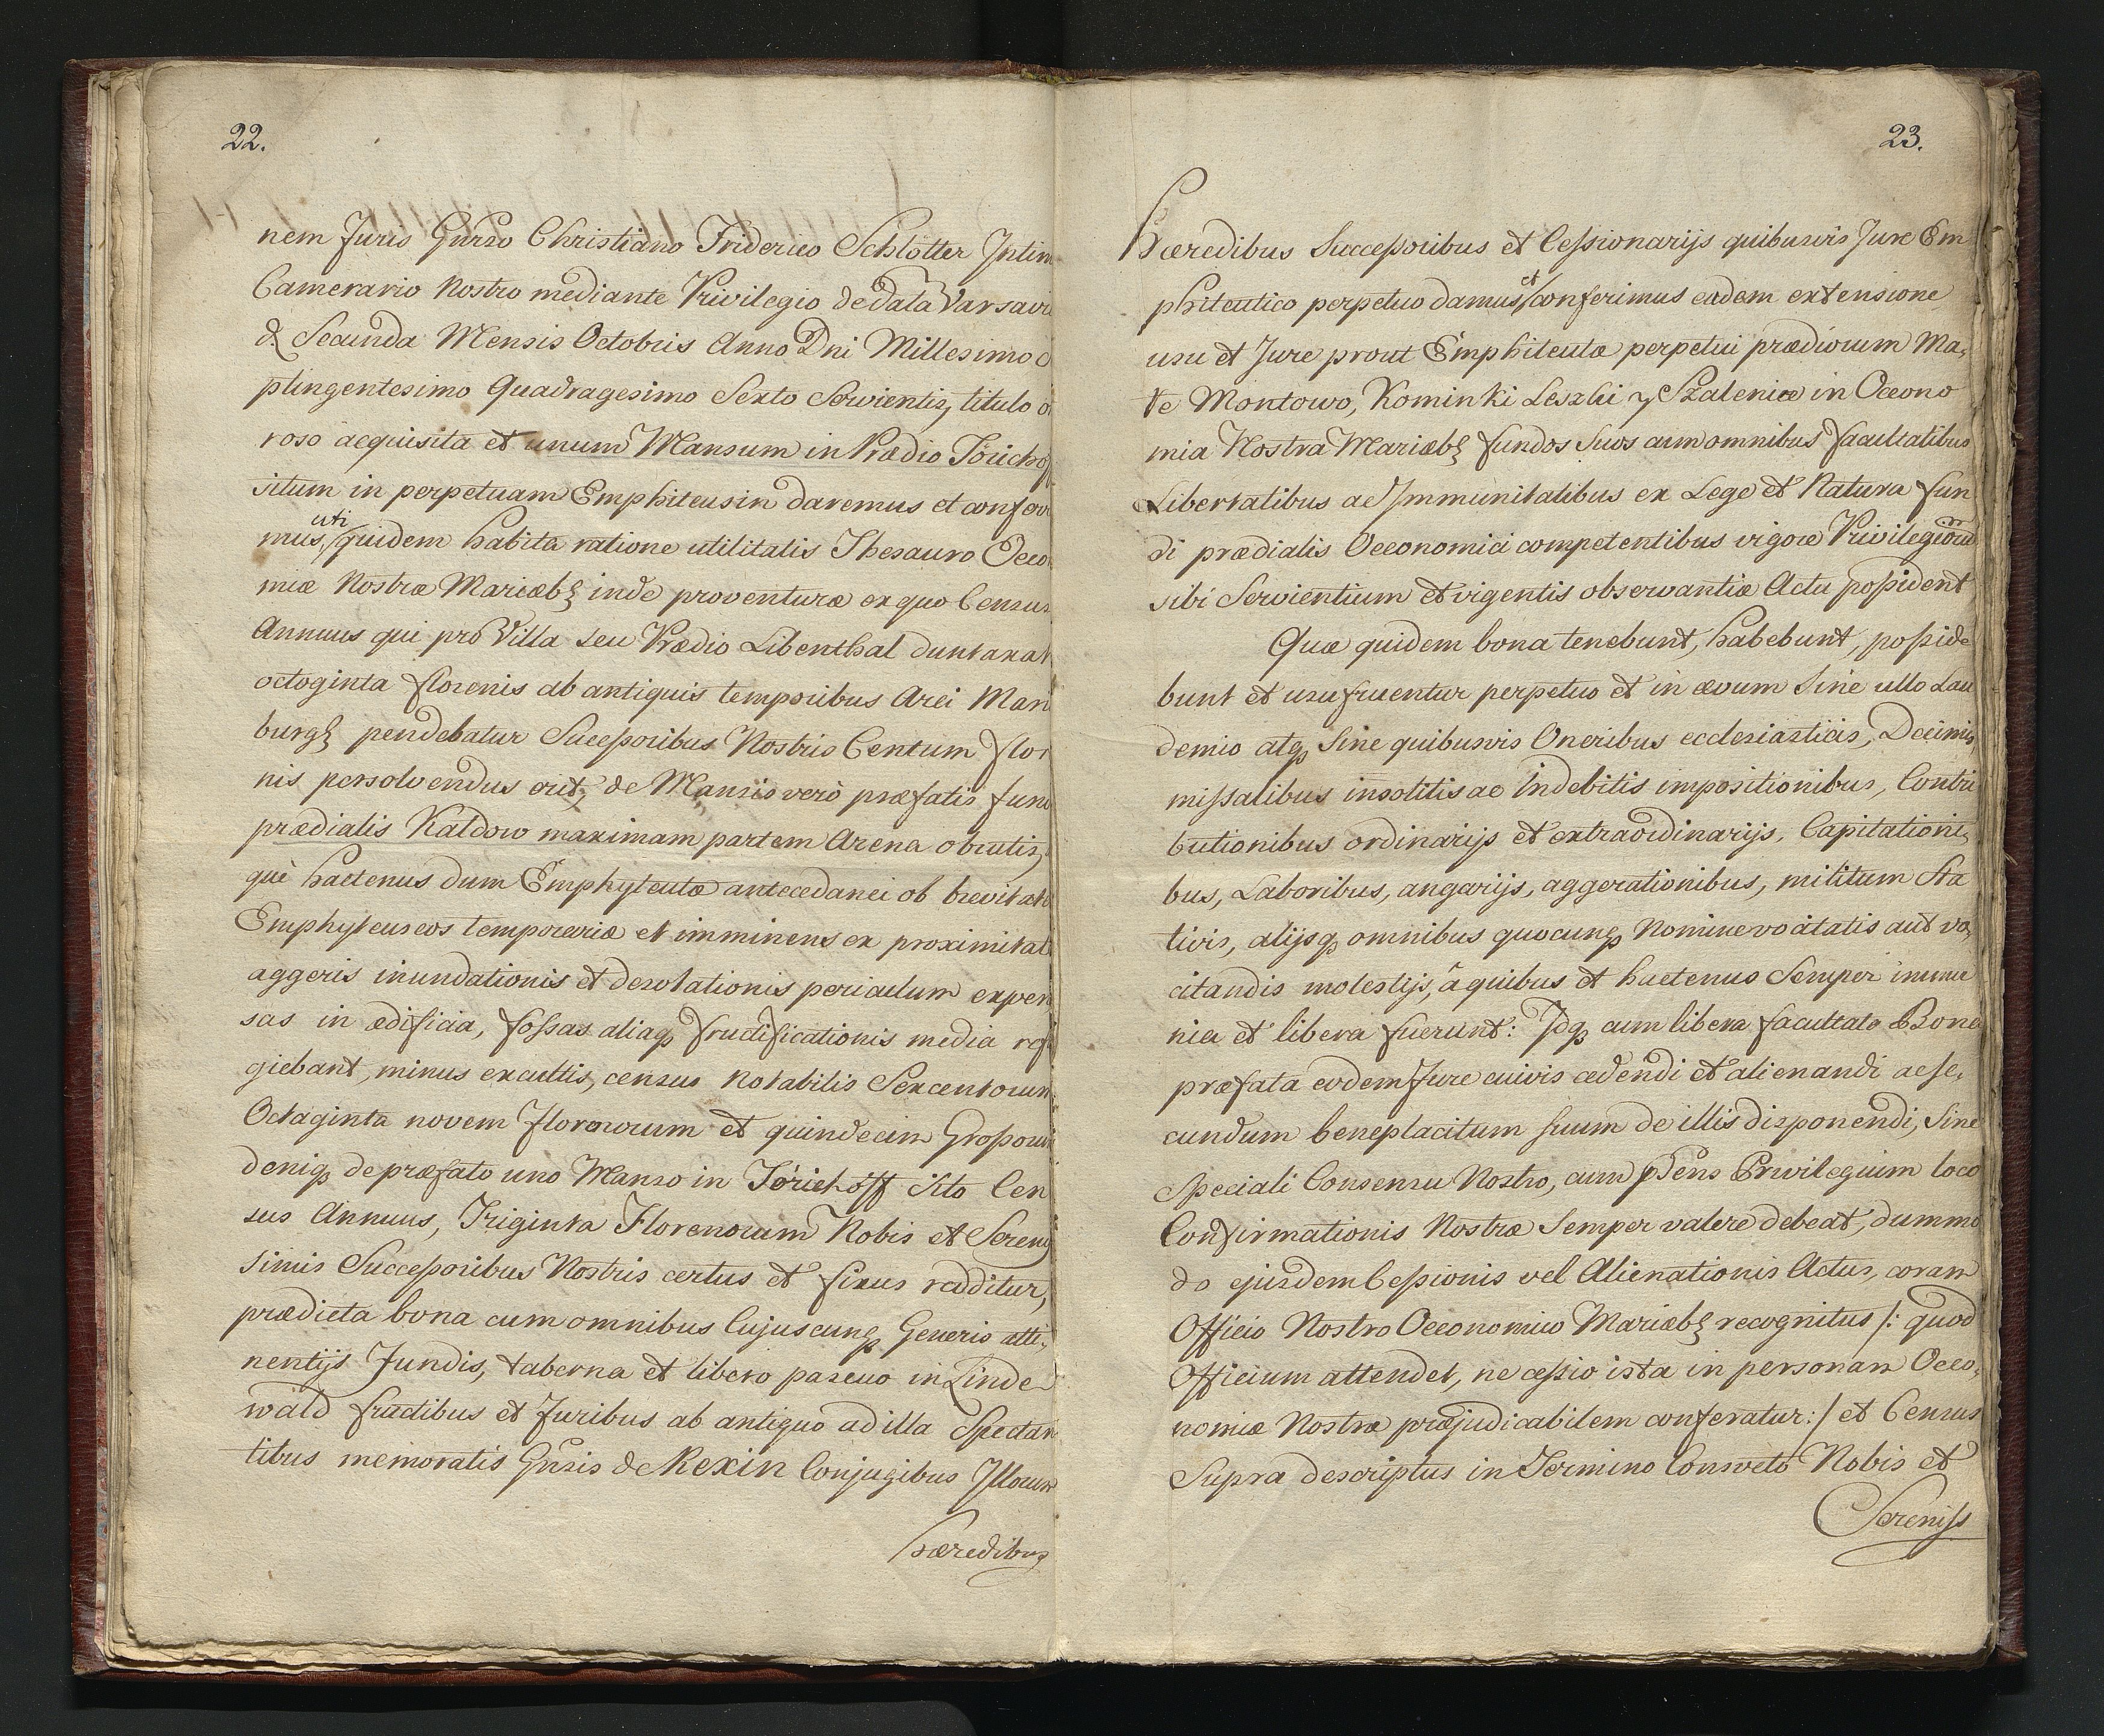 22.
nem Juris Gnrso Christiano Friderico Schlötter Intim
Camerario Nostro mediante Privilegio de data Varsavi
d. Secunda Mensis Octobris Anno Dni Millesimo
ptingentesimo Quadragesimo Sexto Servientis, titulo o
roso acquisita et unum Mansum in Prædio
situm in perpetuam Emphiteusin daremus et confer
mus, uti quidem habita ratione utilitatis Thesauro Oeco
miæ Nostræ Mariæb: inde proventuræ ex quo Census
Annuus qui pro Villa seu Prædio Libenthal duntaxat
octoginta florenis ab antiquis temporibus Arci Mari
burg: pendebatur Successoribus Nostris Centum flor
nis persolvendus erit, de Mansis verò præfatis fun
prædialis Kaldow maximam partem Arena obrutis,
què hactenus dum Emphyteutæ antecedanei ob brevitate
Emphyteuseos temporariæ et imminens ex proximitat
aggeris inundationis et desolationis periculum expen
sas in ædificia, fossas aliaq fructificationis media ref
giebant, minus excultis, census notabilis Sexcentorum
Octaginta novem florenorum et quindecim Grossoru
deniq de præfato uno Manso in Jörickhöff isto Cen
sus Annuus, Triginta Florenorum Nobis et Sereni
simis Successoribus Nostris certus et fixus redditur,
prædicta bona cum omnibus Cujuscunq Generis atti,
nentijs Fundis, taberna et libero pascuo in Linde
wald fructibus et Juribus ab antiquo ad illa Spectan
tibus memoratis Gnsis de Rexin Conjugibus Illorum
Hæredibus
23.
Hæredibus Successoribus et Cessionarijs quibusvis Jure Em
phiteutico perpetuo damus et conferimus eadem extensione
usu et Jure prout Emphiteutæ perpetui prædiorum Ma,
te Montowo, Kominki Leszki y Szalenice in Oecono
mia Nostra Mariæb: fundos Suos cum omnibus facultatibus
Libertatibus ac Immunitatibus ex Lege et Natura fun
di prædialis Oeconomici competentibus vigore Privilegiorũ
sibi Servientium et vigentis observantiæ Actu possident
Quæ quidem bona tenebunt, habebunt, posside
bunt et usufruentur perpetuo et in ævum Sine ullo Lau
demio atq Sine quibusvis Oneribus ecclesiasticis, Decimis
missalibus insolitis ac Indebitis impositionibus, Contri
butionibus ordinarijs et extraordinarijs, Capitationi,
bus, Laboribus, angarijs, aggerationibus, militum Sta
tivis, alijsq omnibus quocunq Nomine vocitatis aut vo,
citandis molestijs, â quibus et huctenus Semper immu
nia et libera fuerunt: Idq cum libera facultate Bona
præfata eodem Jure cuivis cedendi et alienandi ac se,
cundum beneplacitum suum de illis disponendi, Sine
Speciali Consensu Nostro, cum pñs Privilegium loco
Confirmationis Nostræ Semper valere debeat, dummo
do ejusdem Cessionis vel Alienationis Actus, coram
Officio Nostro Oeconomico Mariæb: recognitus /: quod
Officium attendet, ne cessio ista in personam Oeco,
nomiæ Nostræ præjudicabilem conferatur: / et Census
Supra descriptus in Termino Consveto Nobis et
Sereniss